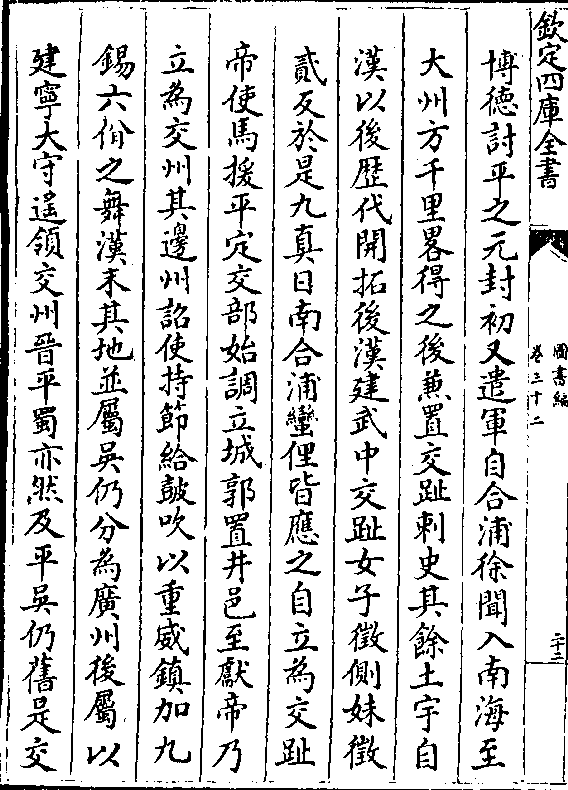 欽定四庫全書
圖書編
卷三十二
二十三
博德討平之元封初又遣軍自合浦徐聞入南海至
大州方千里畧得之後兼置交趾刺史其餘土宇自
漢以後歴代開拓後漢建武中交趾女子徵側妹徵
貳反於是九真日南合浦蠻俚皆應之自立為交趾
帝使馬援平定交部始調立城郭置井邑至獻帝乃
立為交州其邊州詔使持節給鼓吹以重威鎮加九
錫六佾之舞漢末其地並屬吳仍分為廣州後屬以
建寧大守遥領交州晉平蜀亦然及平吳仍舊是交